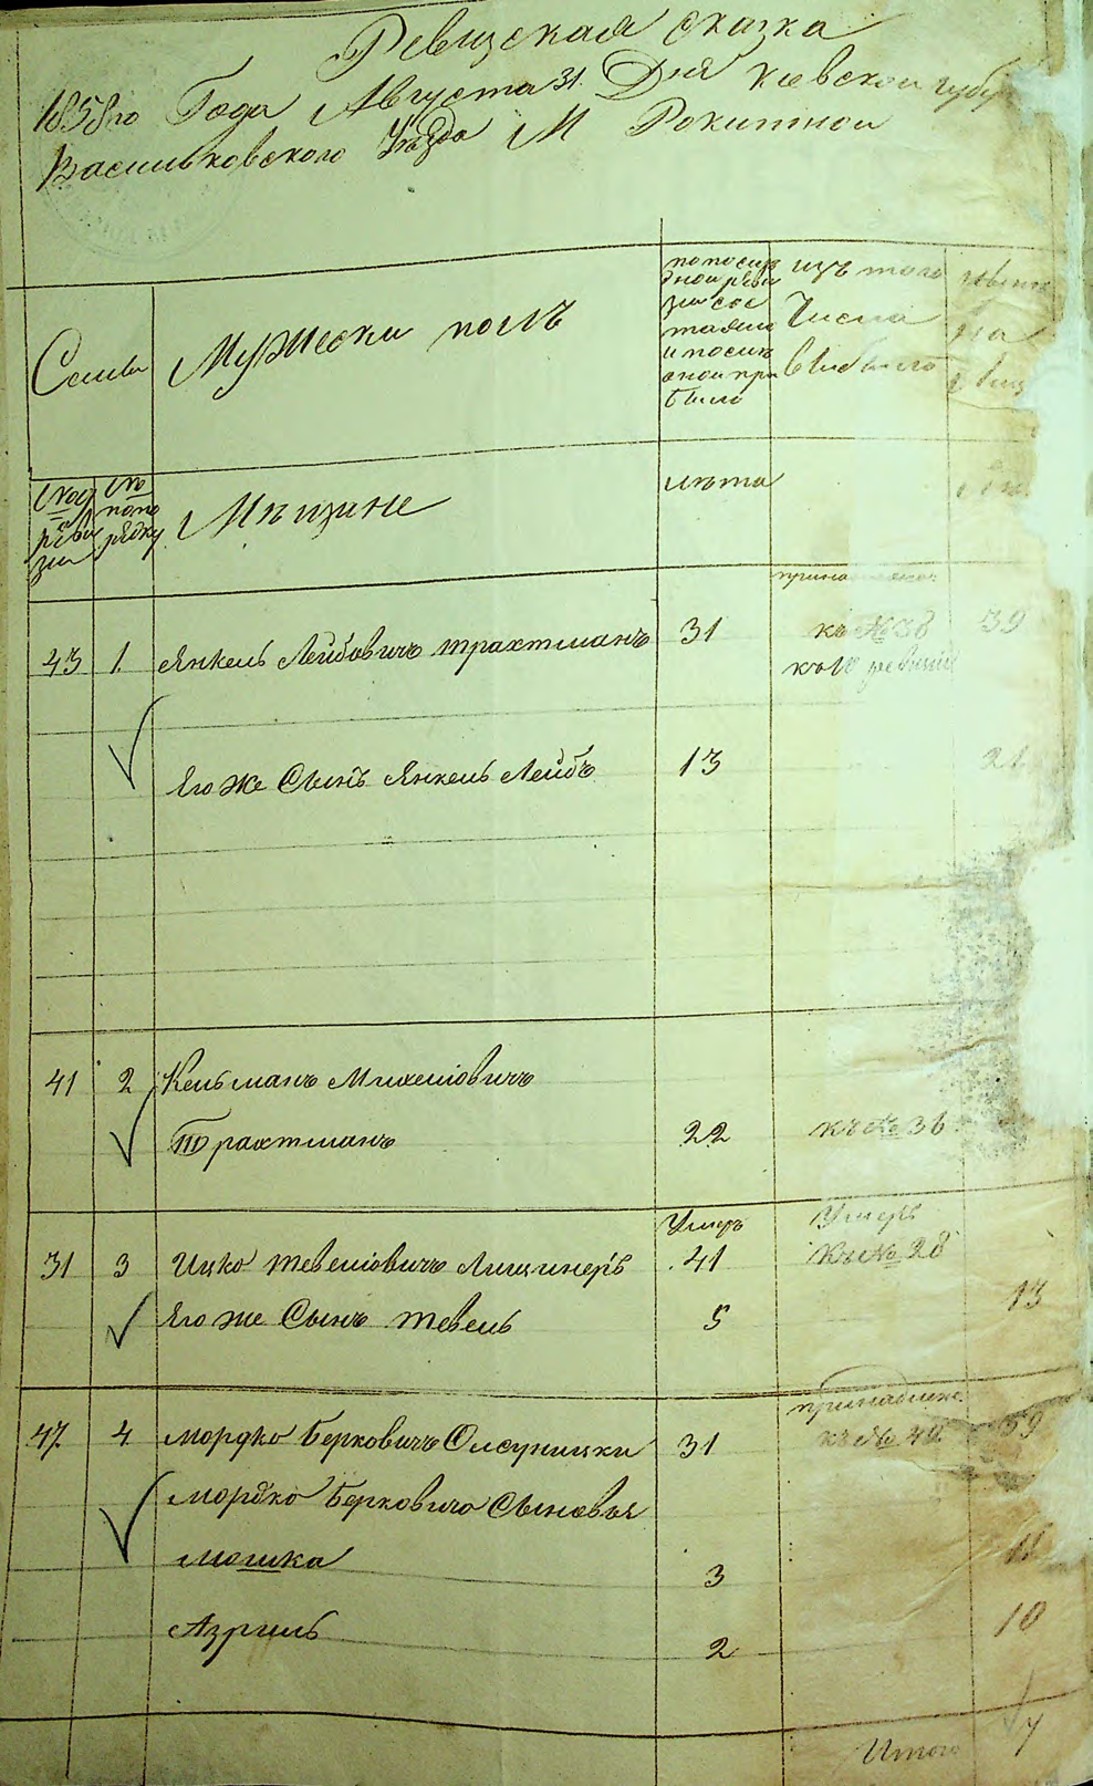 Ревизская сказка
1858го Года Августа 31 Дня Киевской губер
Васильковского Уезда М Рокитной
Семьи
Мужески полъ
по после
дной реви
зии сос
тояло
и после
оной при
было
изъ того
Числа
выбыло
ревизии
по по
рядку
Мещане
лета
43 1 Янкель Лейбовичъ трахтманъ 31 къ № 38 39
къ 10 ревизии
Его же Сынъ Янкель Лейбъ 13 21
41 2 Кельманъ Михелiовичъ
Трахтманъ 22 къ № 36
Умеръ Умеръ
31 3 Ицко тевелiовичъ Лищинеръ 41 Къ № 28
Его же Сынъ тевель 5 13
принадлеж.
47 4 мордко Берковичъ Олсуницки 31 къ № 42 39
мордко Берковича Сыновья
мошка 3 11
Азриль 2 10
Итого 4